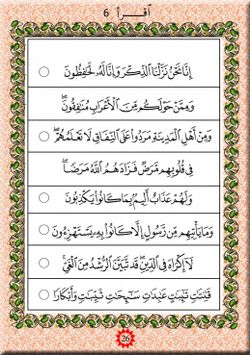 أقرأ 6
إِنَّا نَحْنُ نَزَّلْنَا ٱلذِّكْرَ وَإِنَّا لَهُۥ لَحَٰفِظُونَ
وَمِمَّنْ حَوْلَكُم مِّنَ ٱلْأَعْرَابِ مُنَٰفِقُونَ ۖ
وَمِنْ أَهْلِ ٱلْمَدِينَةِ مَرَدُوا۟ عَلَى ٱلنِّفَاقِ لَا تَعْلَمُهُمْ ۖ
فِى قُلُوبِهِم مَّرَضٌ فَزَادَهُمُ ٱللَّهُ مَرَضًا ۖ
وَلَهُمْ عَذَابٌ أَلِيمٌۢ بِمَا كَانُوا۟ يَكْذِبُونَ
وَمَا يَأْتِيهِم مِّن رَّسُولٍ إِلَّا كَانُوا۟ بِهِۦ يَسْتَهْزِءُونَ
لَآ إِكْرَاهَ فِى ٱلدِّينِ ۖ قَد تَّبَيَّنَ ٱلرُّشْدُ مِنَ ٱلْغَىِّ ۚ
قَٰنِتَٰتٍ تَٰٓئِبَٰتٍ عَٰبِدَٰتٍ سَٰٓئِحَٰتٍ ثَيِّبَٰتٍ وَأَبْكَارًا
26